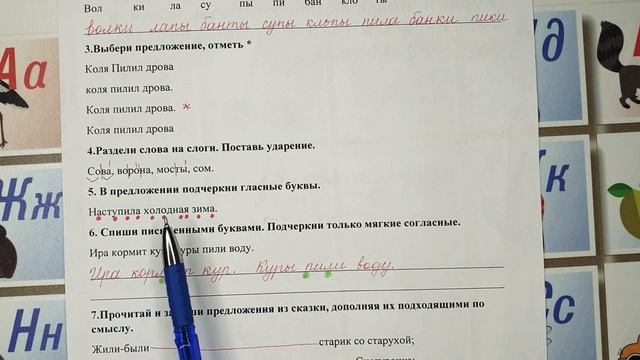 Вол ки ла су пы пи бан кло ты
волки лапы банты супы клопы пила банки пики
3.Выбери предложение, отметь *
Коля Пилил дрова
коля пилил дрова.
Коля пилил дрова. *
Коля пилил дрова
4.Раздели слова на слоги. Поставь ударение.
Сова, ворона, мосты, сом.
5. В предложении подчеркни гласные буквы.
Наступила холодная зима.
6. Спиши письменными буквами. Подчеркни только мягкие согласные.
Ира кормит кур. Куры пили воду.
Ира кормит кур. Куры пили воду.
7.Прочитай и запиши предложения из сказки, дополняя их подходящими по
смыслу.
Жили-были старик со старухой;
Аа
Жж
Нн
Дд
Сс